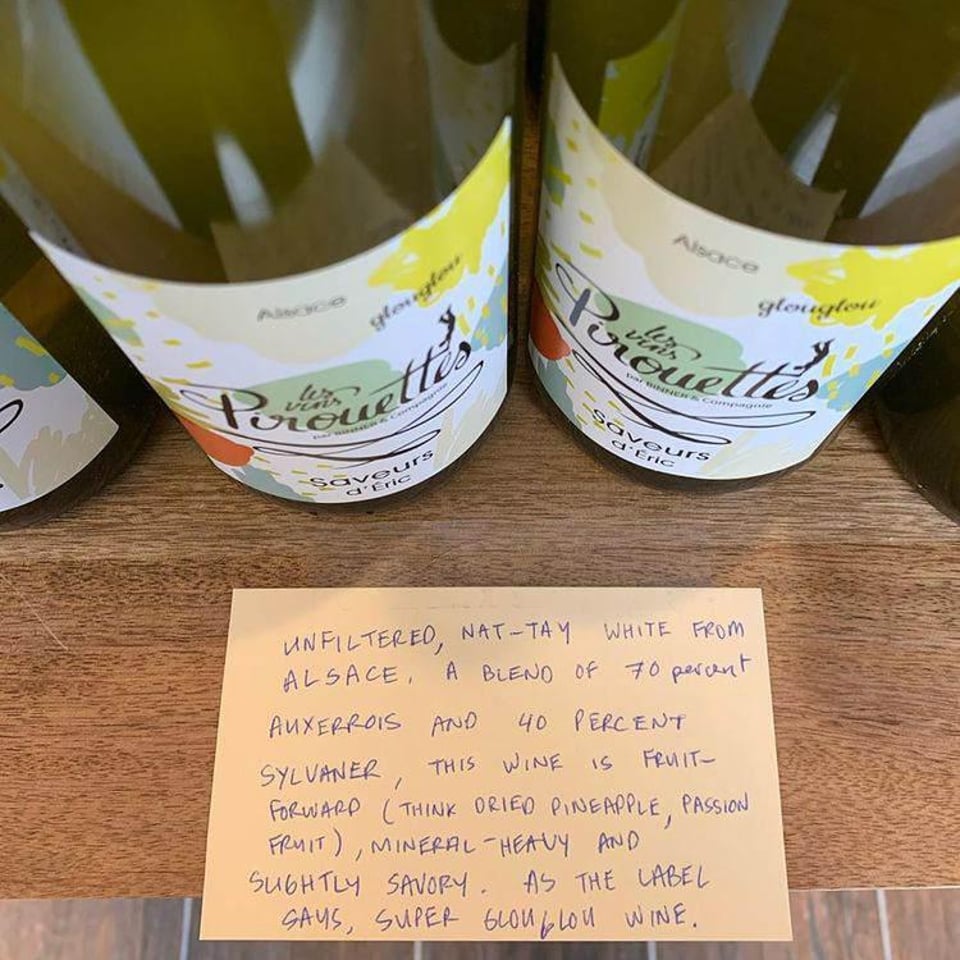 Alsace
glouglou
les
vins
Pirouettes
par BINNER & Compagnie
saveurs
d'Éric
Alsace
glouglou
les
vins
Pirouettes
par BINNER & Compagnie
saveurs
d'Éric
UNFILTERED, NAT-TAY WHITE FROM
ALSACE. A BLEND OF 70 percent
AUXERROIS AND 40 PERCENT
SYLVANER, THIS WINE IS FRUIT-
FORWARD (THINK DRIED PINEAPPLE, PASSION
FRUIT), MINERAL-HEAVY AND
SLIGHTLY SAVORY. AS THE LABEL
SAYS, SUPER GLOUGLOU WINE.